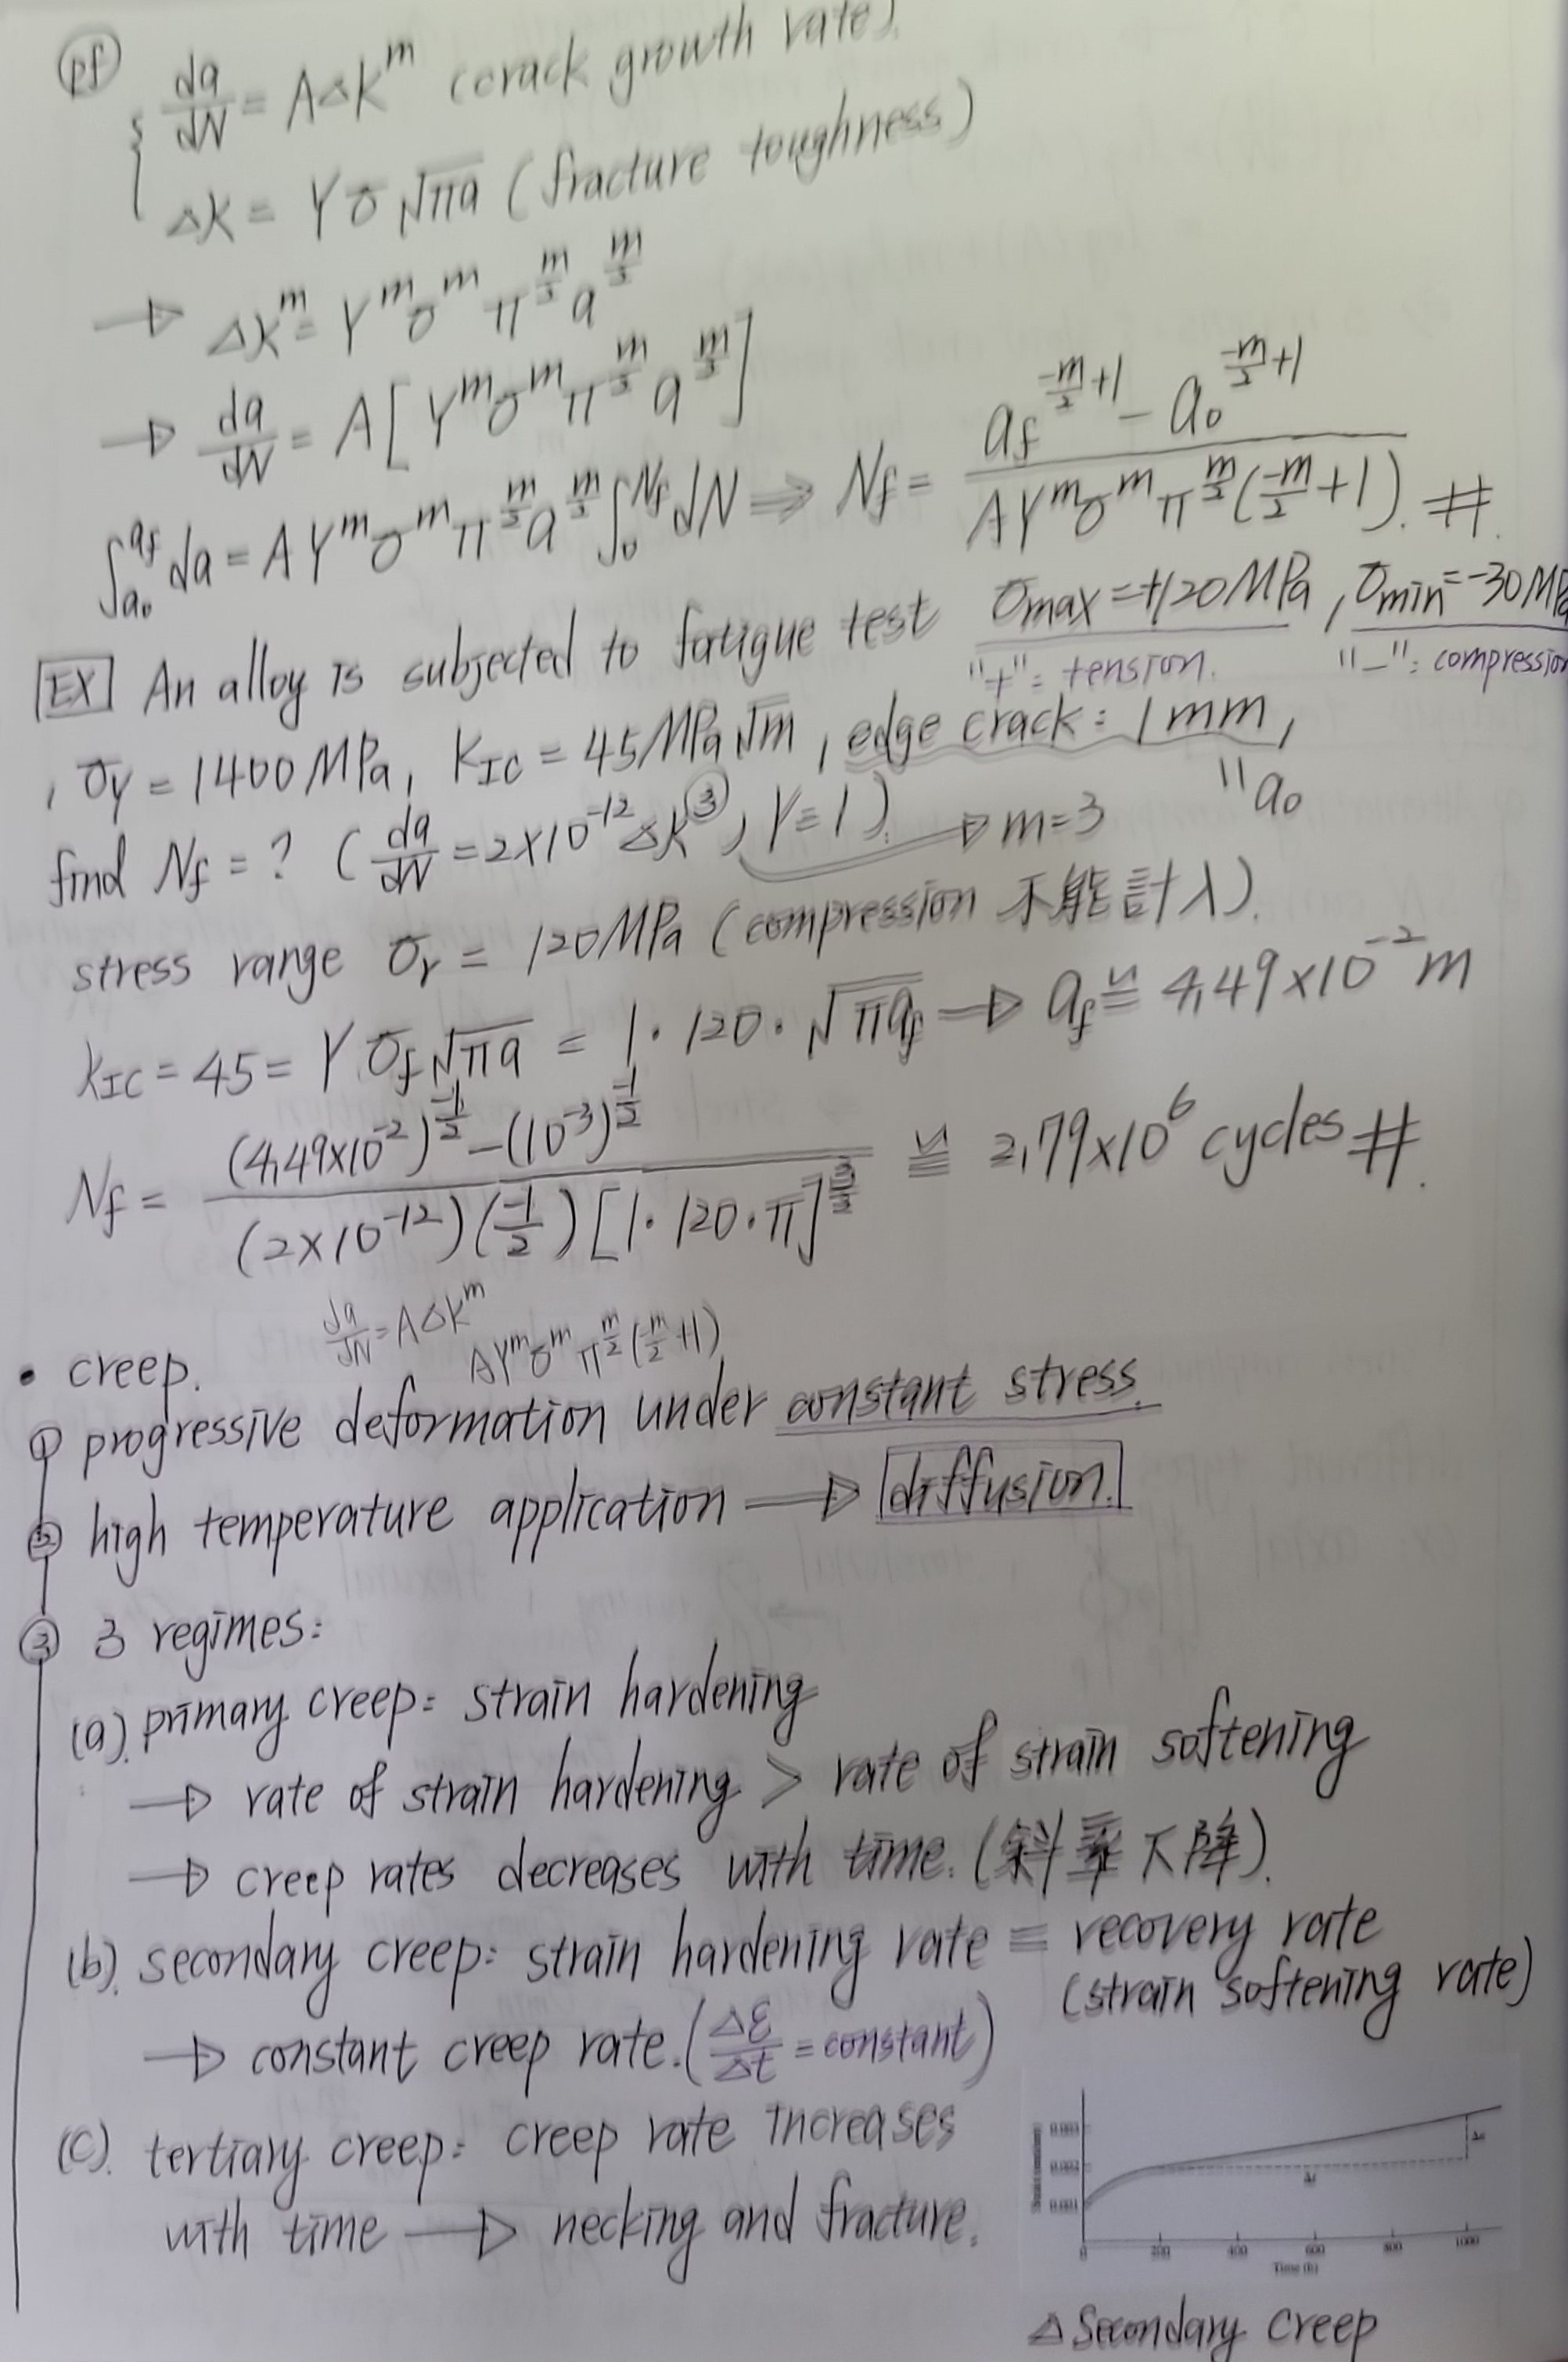 (pf) { da/dN = AΔK^m (crack growth rate).
ΔK = Yσ√πa (fracture toughness)
→ ΔK^m = Y^m σ^m π^(m/2) a^(m/2)
→ da/dN = A[Y^m σ^m π^(m/2) a^(m/2)]
∫_{a0}^{af} da = AY^m σ^m π^(m/2) a^(m/2) ∫_0^{Nf} dN ⇒ Nf = (af^(-m/2+1) - a0^(-m/2+1)) / (AY^m σ^m π^(m/2) (-m/2+1)). #
[EX] An alloy is subjected to fatigue test σmax = +120MPa, σmin = -30MPa
"+": tension. "-": compression
, σy = 1400MPa, KIC = 45MPa√m, edge crack: 1mm,
"a0
find Nf = ? (da/dN = 2×10^-12 ΔK^③, Y≡1). → m=3
stress range σr = 120MPa (compression 不能計入).
KIC = 45 = Yσf√πa = 1·120·√πaf → af ≅ 4.49×10^-2 m
Nf = ((4.49×10^-2)^(-1/2) - (10^-3)^(-1/2)) / ((2×10^-12)(-1/2)[1·120·π]^(3/2)) ≅ 2.79×10^6 cycles #.
da/dN = AΔK^m
AY^m σ^m π^(m/2) (-m/2+1)
• creep.
① progressive deformation under constant stress.
② high temperature application → diffusion.
③ 3 regimes:
(a). primary creep: strain hardening
→ rate of strain hardening > rate of strain softening
→ creep rates decreases with time. (斜率下降).
(b). secondary creep: strain hardening rate ≡ recovery rate
(strain softening rate)
→ constant creep rate. (Δε/Δt = constant)
(c). tertiary creep: creep rate increases
with time → necking and fracture.
0.003
0.002
0.001
Δε
Δt
0 200 400 600 800 1000
Time (h)
△ Secondary creep